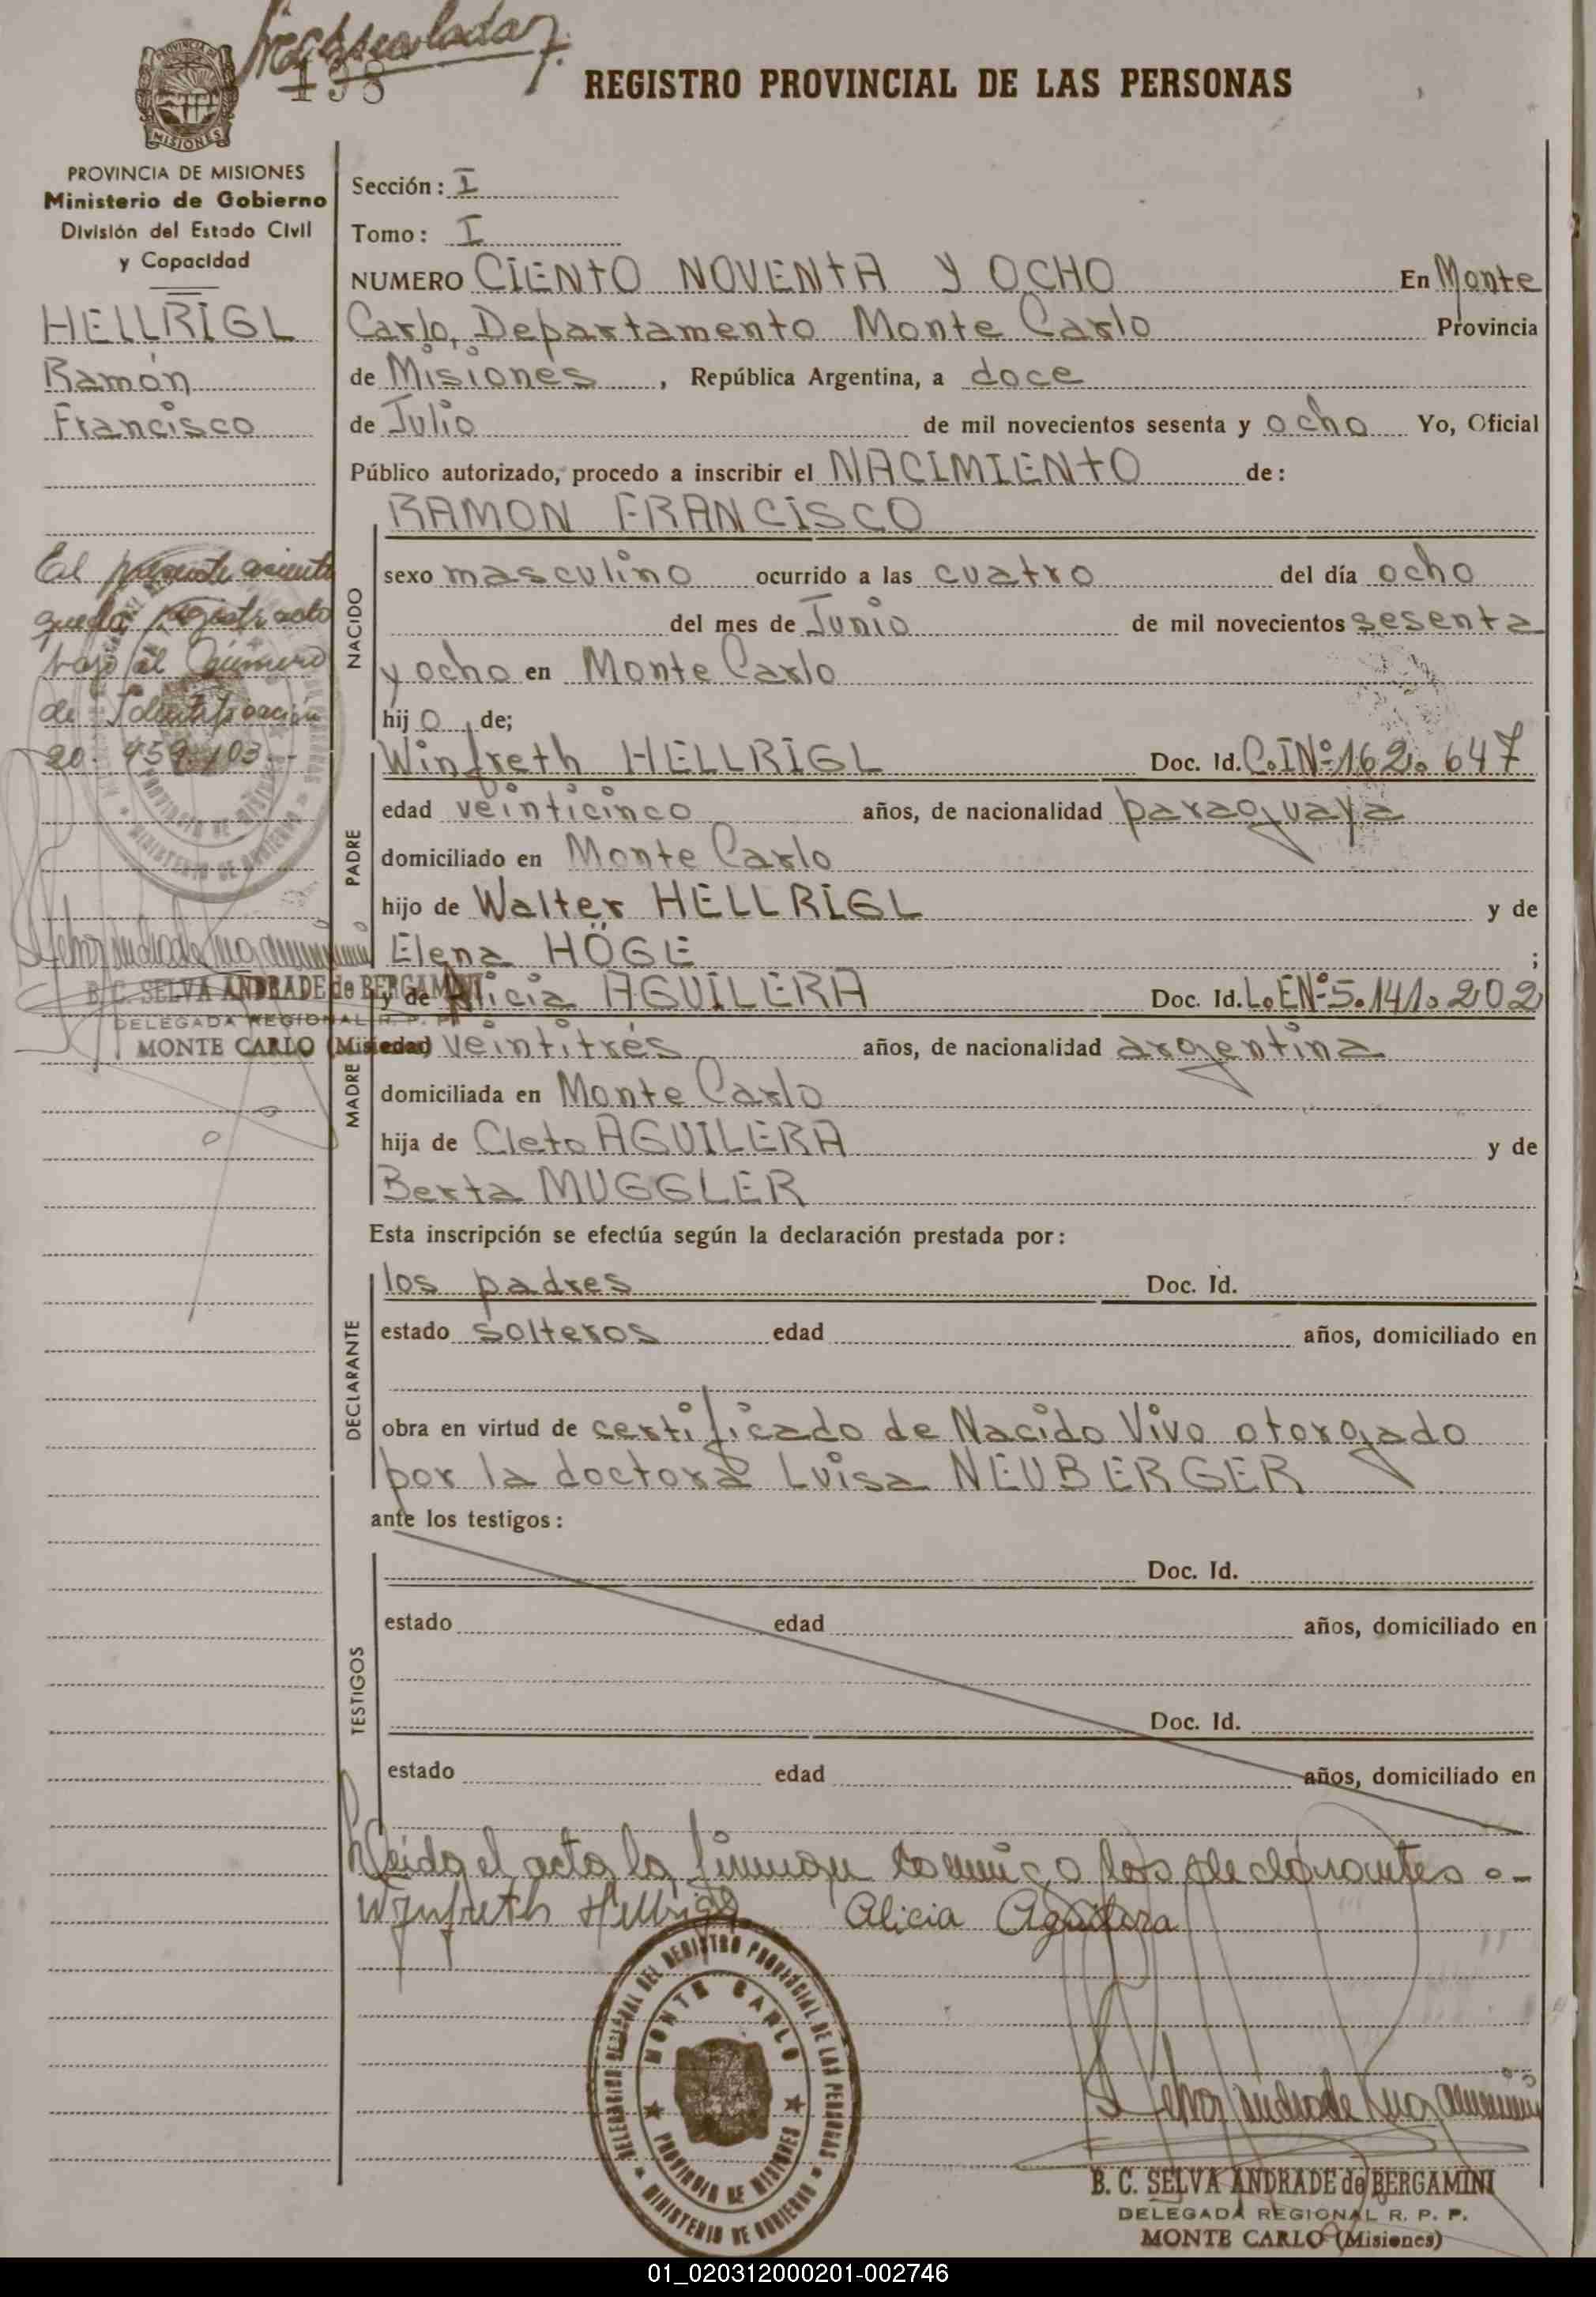 198
REGISTRO PROVINCIAL DE LAS PERSONAS
PROVINCIA DE MISIONES
Ministerio de Gobierno
División del Estado Civil
y Capacidad
HELLRIGL
Ramón
Francisco
El presente asiento
queda registrado
bajo el número
de Identificación
20.459.103.-
B. C. SELVA ANDRADE de BERGAMINI
DELEGADA REGIONAL R. P. P.
MONTE CARLO (Misiones)
Sección: I
Tomo: I
NUMERO CIENTO NOVENTA Y OCHO En Monte
Carlo, Departamento Monte Carlo Provincia
de Misiones, República Argentina, a doce
de Julio de mil novecientos sesenta y ocho Yo, Oficial
Público autorizado, procedo a inscribir el NACIMIENTO de:
NACIDO
RAMON FRANCISCO
sexo masculino ocurrido a las cuatro del día ocho
del mes de Junio de mil novecientos sesenta
y ocho en Monte Carlo
hijo de;
PADRE
Winfreth HELLRIGL Doc. Id. C.I Nº 162.647
edad veinticinco años, de nacionalidad paraguaya
domiciliado en Monte Carlo
hijo de Walter HELLRIGL y de
Elena HÖGE ;
MADRE
y de Alicia AGUILERA Doc. Id. L.E Nº 5.141.202
edad veintitrés años, de nacionalidad argentina
domiciliada en Monte Carlo
hija de Cleto AGUILERA y de
Berta MUGGLER
Esta inscripción se efectúa según la declaración prestada por:
DECLARANTE
los padres Doc. Id.
estado solteros edad años, domiciliado en
obra en virtud de certificado de Nacido Vivo otorgado
por la doctora Luisa NEUBERGER
ante los testigos:
TESTIGOS
Doc. Id.
estado edad años, domiciliado en
Doc. Id.
estado edad años, domiciliado en
Leida el acta la firman conmigo los declarantes.-
Winfreth Hellrigl Alicia Aguilera
DELEGACION REGIONAL DEL REGISTRO PROVINCIAL DE LAS PERSONAS
MONTE CARLO
PROVINCIA DE MISIONES
MINISTERIO DE GOBIERNO
B. C. SELVA ANDRADE de BERGAMINI
DELEGADA REGIONAL R. P. P.
MONTE CARLO (Misiones)
01_020312000201-002746